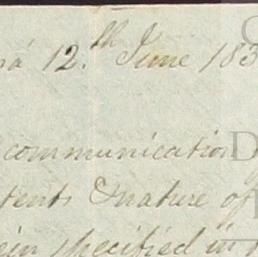 12.th June 183
communication
tents & nature of
ein specified in